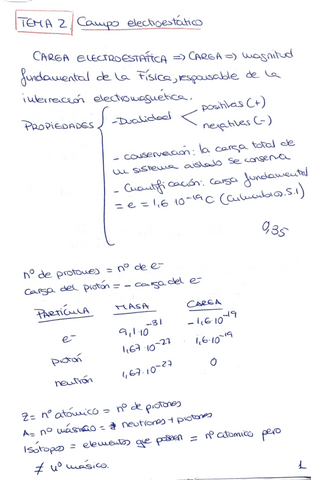 TEMA 2 Campo electroestático
CARGA ELECTROESTÁTICA ⇒ CARGA ⇒ magnitud
fundamental de la Física, responsable de la
interacción electromagnética.
PROPIEDADES
- Dualidad
positivas (+)
negativas (-)
- conservación: la carga total de
un sistema aislado se conserva
- Cuantificación: carga fundamental
= e = 1,6 10⁻¹⁹ C (Culombios S.I)
9,35
nº de protones = nº de e⁻
Carga del protón = - carga del e⁻
PARTÍCULA MASA CARGA
e⁻ 9,1·10⁻³¹ -1,6·10⁻¹⁹
protón 1,67·10⁻²⁷ 1,6·10⁻¹⁹
neutrón 1,67·10⁻²⁷ 0
Z = nº atómico = nº de protones
A = nº másico = neutrones + protones
Isótopos = elementos que poseen = nº atomico pero
≠ nº másico.
1